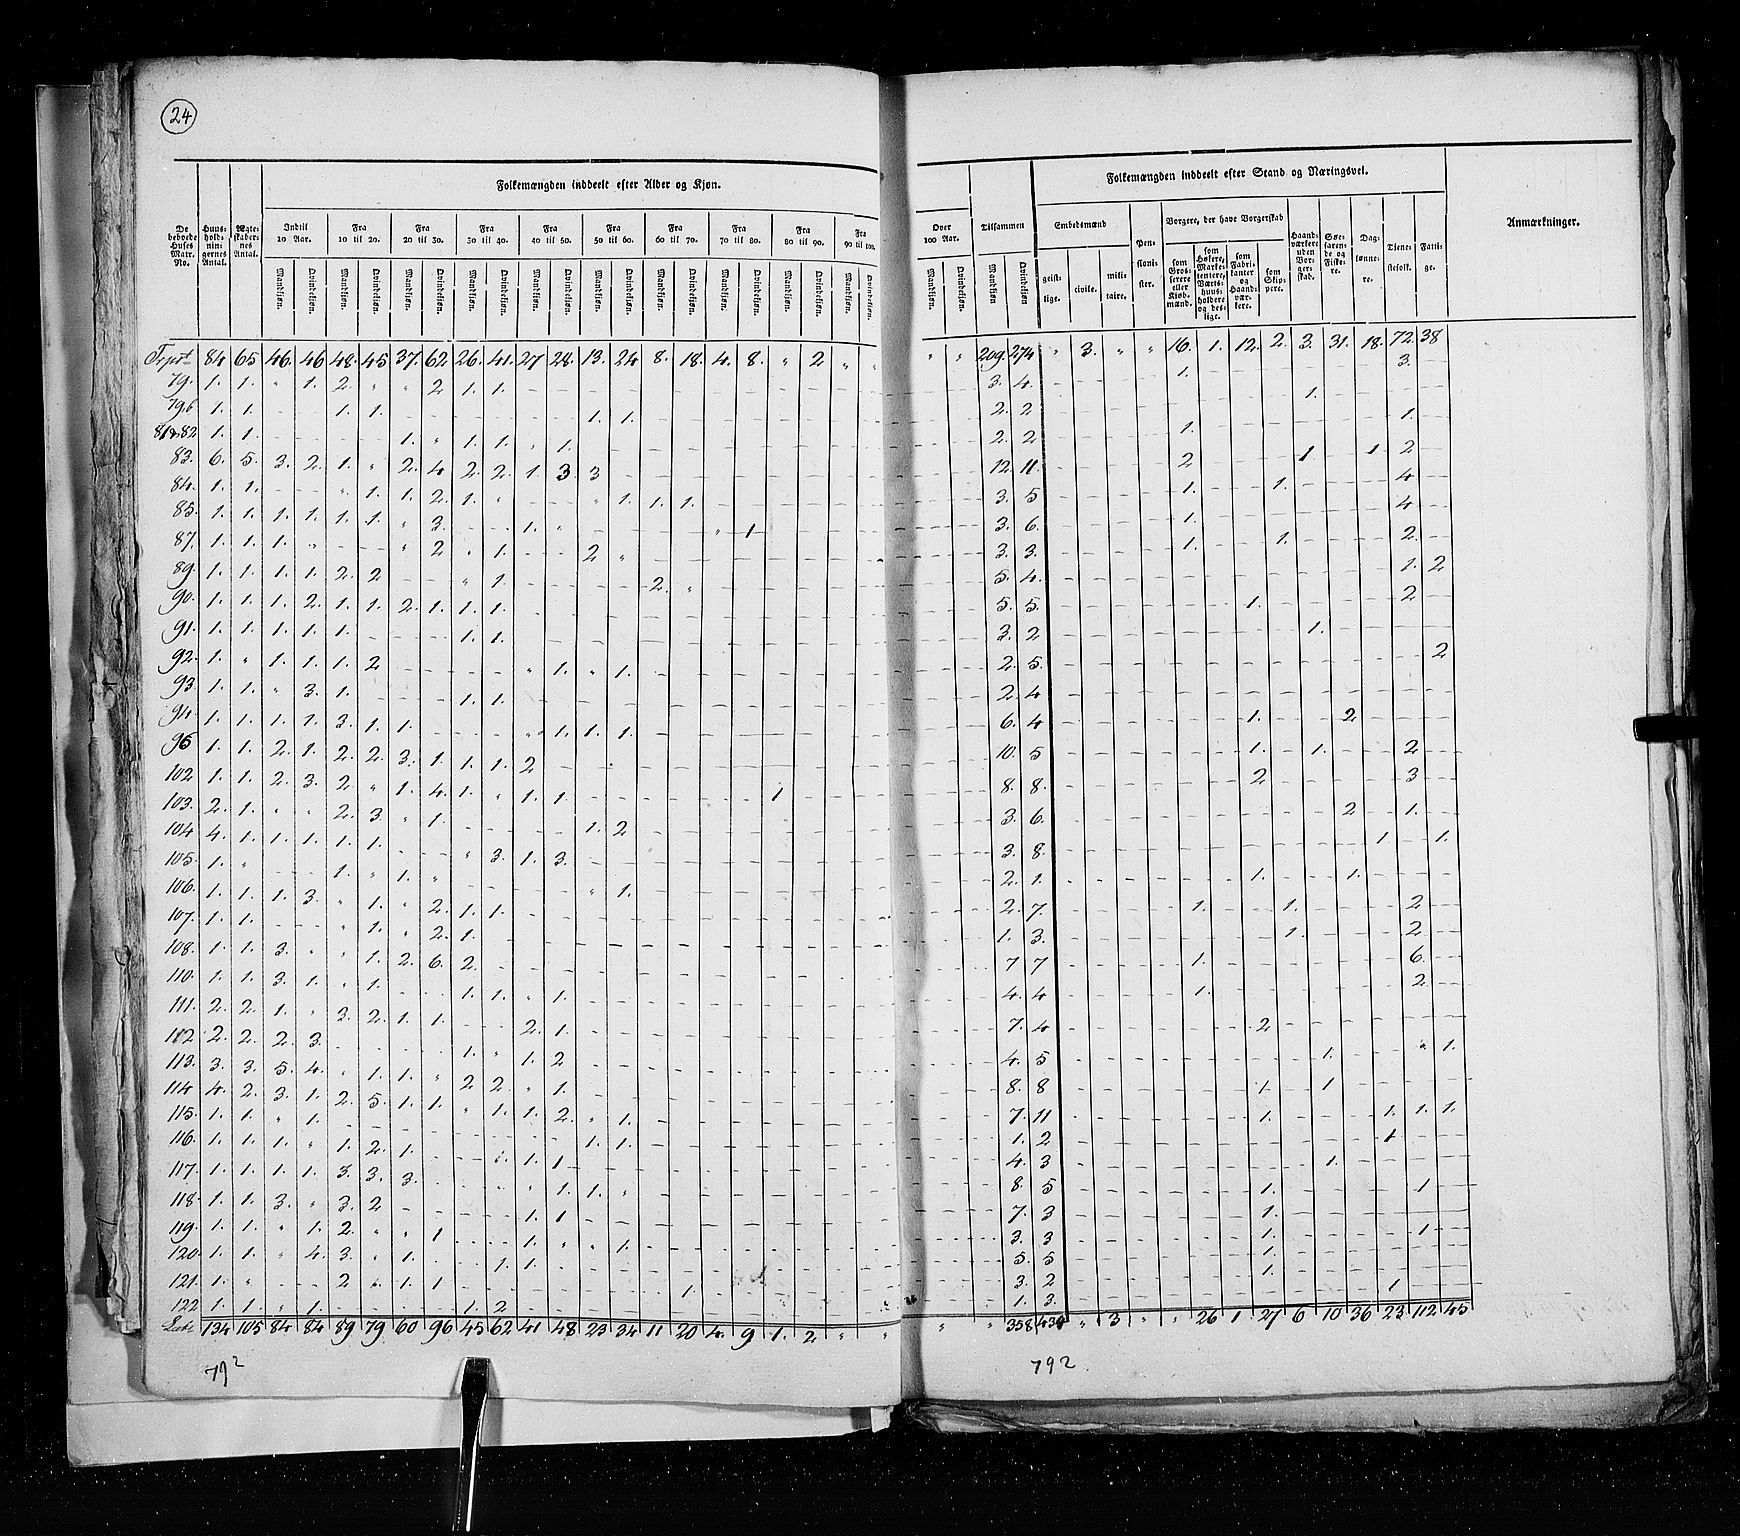 24
Folkemængden inddeelt efter Alder og Kjøn.
Folkemængden inddeelt efter Stand og Næringsvei.
Anmærkninger.
De beboede Huses Matr. No.
Huus-hold-nin-gernes Antal.
Ægte-skaber-nes Antal.
Indtil 10 Aar.
Fra 10 til 20.
Fra 20 til 30.
Fra 30 til 40.
Fra 40 til 50.
Fra 50 til 60.
Fra 60 til 70.
Fra 70 til 80.
Fra 80 til 90.
Fra 90 til 100.
Over 100 Aar.
Tilsammen
Embedsmænd
Pen-sioni-ster.
Borgere, der have Borgerskab
Haand-værkere uden Bor-ger-skab.
Søe-faren-de og Fiske-re.
Dag-lønne-re.
Tjene-stefolk.
Fatti-ge.
Mandkjøn. Qvindekjøn. Mandkjøn. Qvindekjøn. Mandkjøn. Qvindekjøn. Mandkjøn. Qvindekjøn. Mandkjøn. Qvindekjøn. Mandkjøn. Qvindekjøn. Mandkjøn. Qvindekjøn. Mandkjøn. Qvindekjøn. Mandkjøn. Qvindekjøn. Mandkjøn. Qvindekjøn. Mandkjøn. Qvindekjøn. Mandkjøn Qvindekjøn
geist-lige. civile. mili-taire,
som Gros-serere eller Kjøb-mænd.
som Høkere, Marke-tentere, Værts-huus-holdere og des-lige.
som Fabri-kanter og Haand-vær-kere.
som Skip-pere.
Trpst 84 65 46. 46 48. 45 37. 62 26. 41. 27 28. 13. 24 8. 18. 4. 8. " 2 " " " " 209. 274 " 3. " " 16. 1. 12. 2. 3. 31. 18. 72. 38
79. 1. 1. " 1. 2. " " 2 1. 1. 3. 4. 1. 3.
79b 1. 1. 1. 1. 1. 1. 2. 2 1.
81&82 1. 1. 1. " 1. 1. " 1. 2. 2 1. 1.
83. 6. 5. 3. 2. 1. " 2. 4 2. 2. 1. 3. 3 12. 11. 2 1. 1 2
84. 1. 1. " 1. 1. 2. 1. " " 1. 1. 1. 3. 5 1. 1. 4
85. 1. 1. 1. 1. 1. 1. " 3. 1. " " 1 3. 6. 1. 4
87. 1. 1. 1. " " 2 " 1. 2 " 3. 3. 1. 1. 2.
89. 1. 1. 1. 1. 2. 2 " 1. 2. " 5. 4. 1. 2
90. 1. 1. 1. 2. 1. 1. 2. 1. 1. 1. 5. 5. 1. 2
91. 1. 1. 1. 1. 1. 1. 1. 3. 2 1.
92. 1. " 1. 1. 1. 2 " 1. " 1. 2. 5. 2
93. 1. 1. " 3. 1. 1. 1. 2. 4
94. 1. 1. 1. 1. 3. 1. 1. " 1. 1. 1. 6. 4 1. 2
96 1. 1. 2. 1. 2. 2. 3. 1. 1. 1. 2 10. 5 1. 1. 2
102 1. 1. 2. 3. 2 " 1. 4. 1. " 1. 1. 1 8. 8. 2 3
103. 2. 1. " " 2. 3. " 1. 1. 2 3. 6. 2 1.
104 4. 1. 1. 1. 1. 1. " 3. 1. 3. 3. 8. 1 1.
105. 1. " 1. " 1. " " 1. 2. 1. 1. 1.
106. 1. 1. 1. 3. " 1. " 2. 1. 1. 2. 7. 1. 1. 2
107. 1. 1. " 1. " 2. 1. 1. 3. 1. 2
108. 1. 1. 3. " " 1. 2. 6. 2. 7 7 1. 6.
110. 1. 1. 3. 1. " 1. 1. 1. " 1. 4. 4 1. 2.
111. 2. 2. 1. " 3. 2. 1. 1. 2. 1. 7. 4 2
112 2. 2. 2. 3. 1. " 1. 2 4. 5 1. " 1.
113. 3. 3. 5. 4. " 1. 1. " 2. 2. " 1. 8. 8 1 1
114 4. 2. 3. 1. 2. 5. 1. 1. " 1. 1. 2. " 1. 7. 11 1. 1. 1. 1.
115. 1. 1. " 1. 1. 1. 1. 2 1
116. 1. 1. 1. " 1. 2. 1. 1. 1 4. 3 1.
117. 1. 1. 1. 1. 3. 3. 3. " " 1. 1. " 8. 5 1. 1
118. 1. 1. 3. " 3. 2 1. 1 7. 3 1.
119. 1. 1. " 1. 2. " " 1 1. " " 1. 3. 3 1. 1
120. 1. 1. " 4. 3. " 1. 1. 1. 5. 5 1.
121. 1. " 2 " 1. 1 1. 3. 2 1. 1
122 1. 1. " 1. 1. 2 1. 3.
134 105 84 84 89 79 60 96 45 62 41 48 23 34 11 20 4. 9 1. 2 " " " " 358 434 " 3 " " 26 1 27 6 10 36 23 112 45
792
792